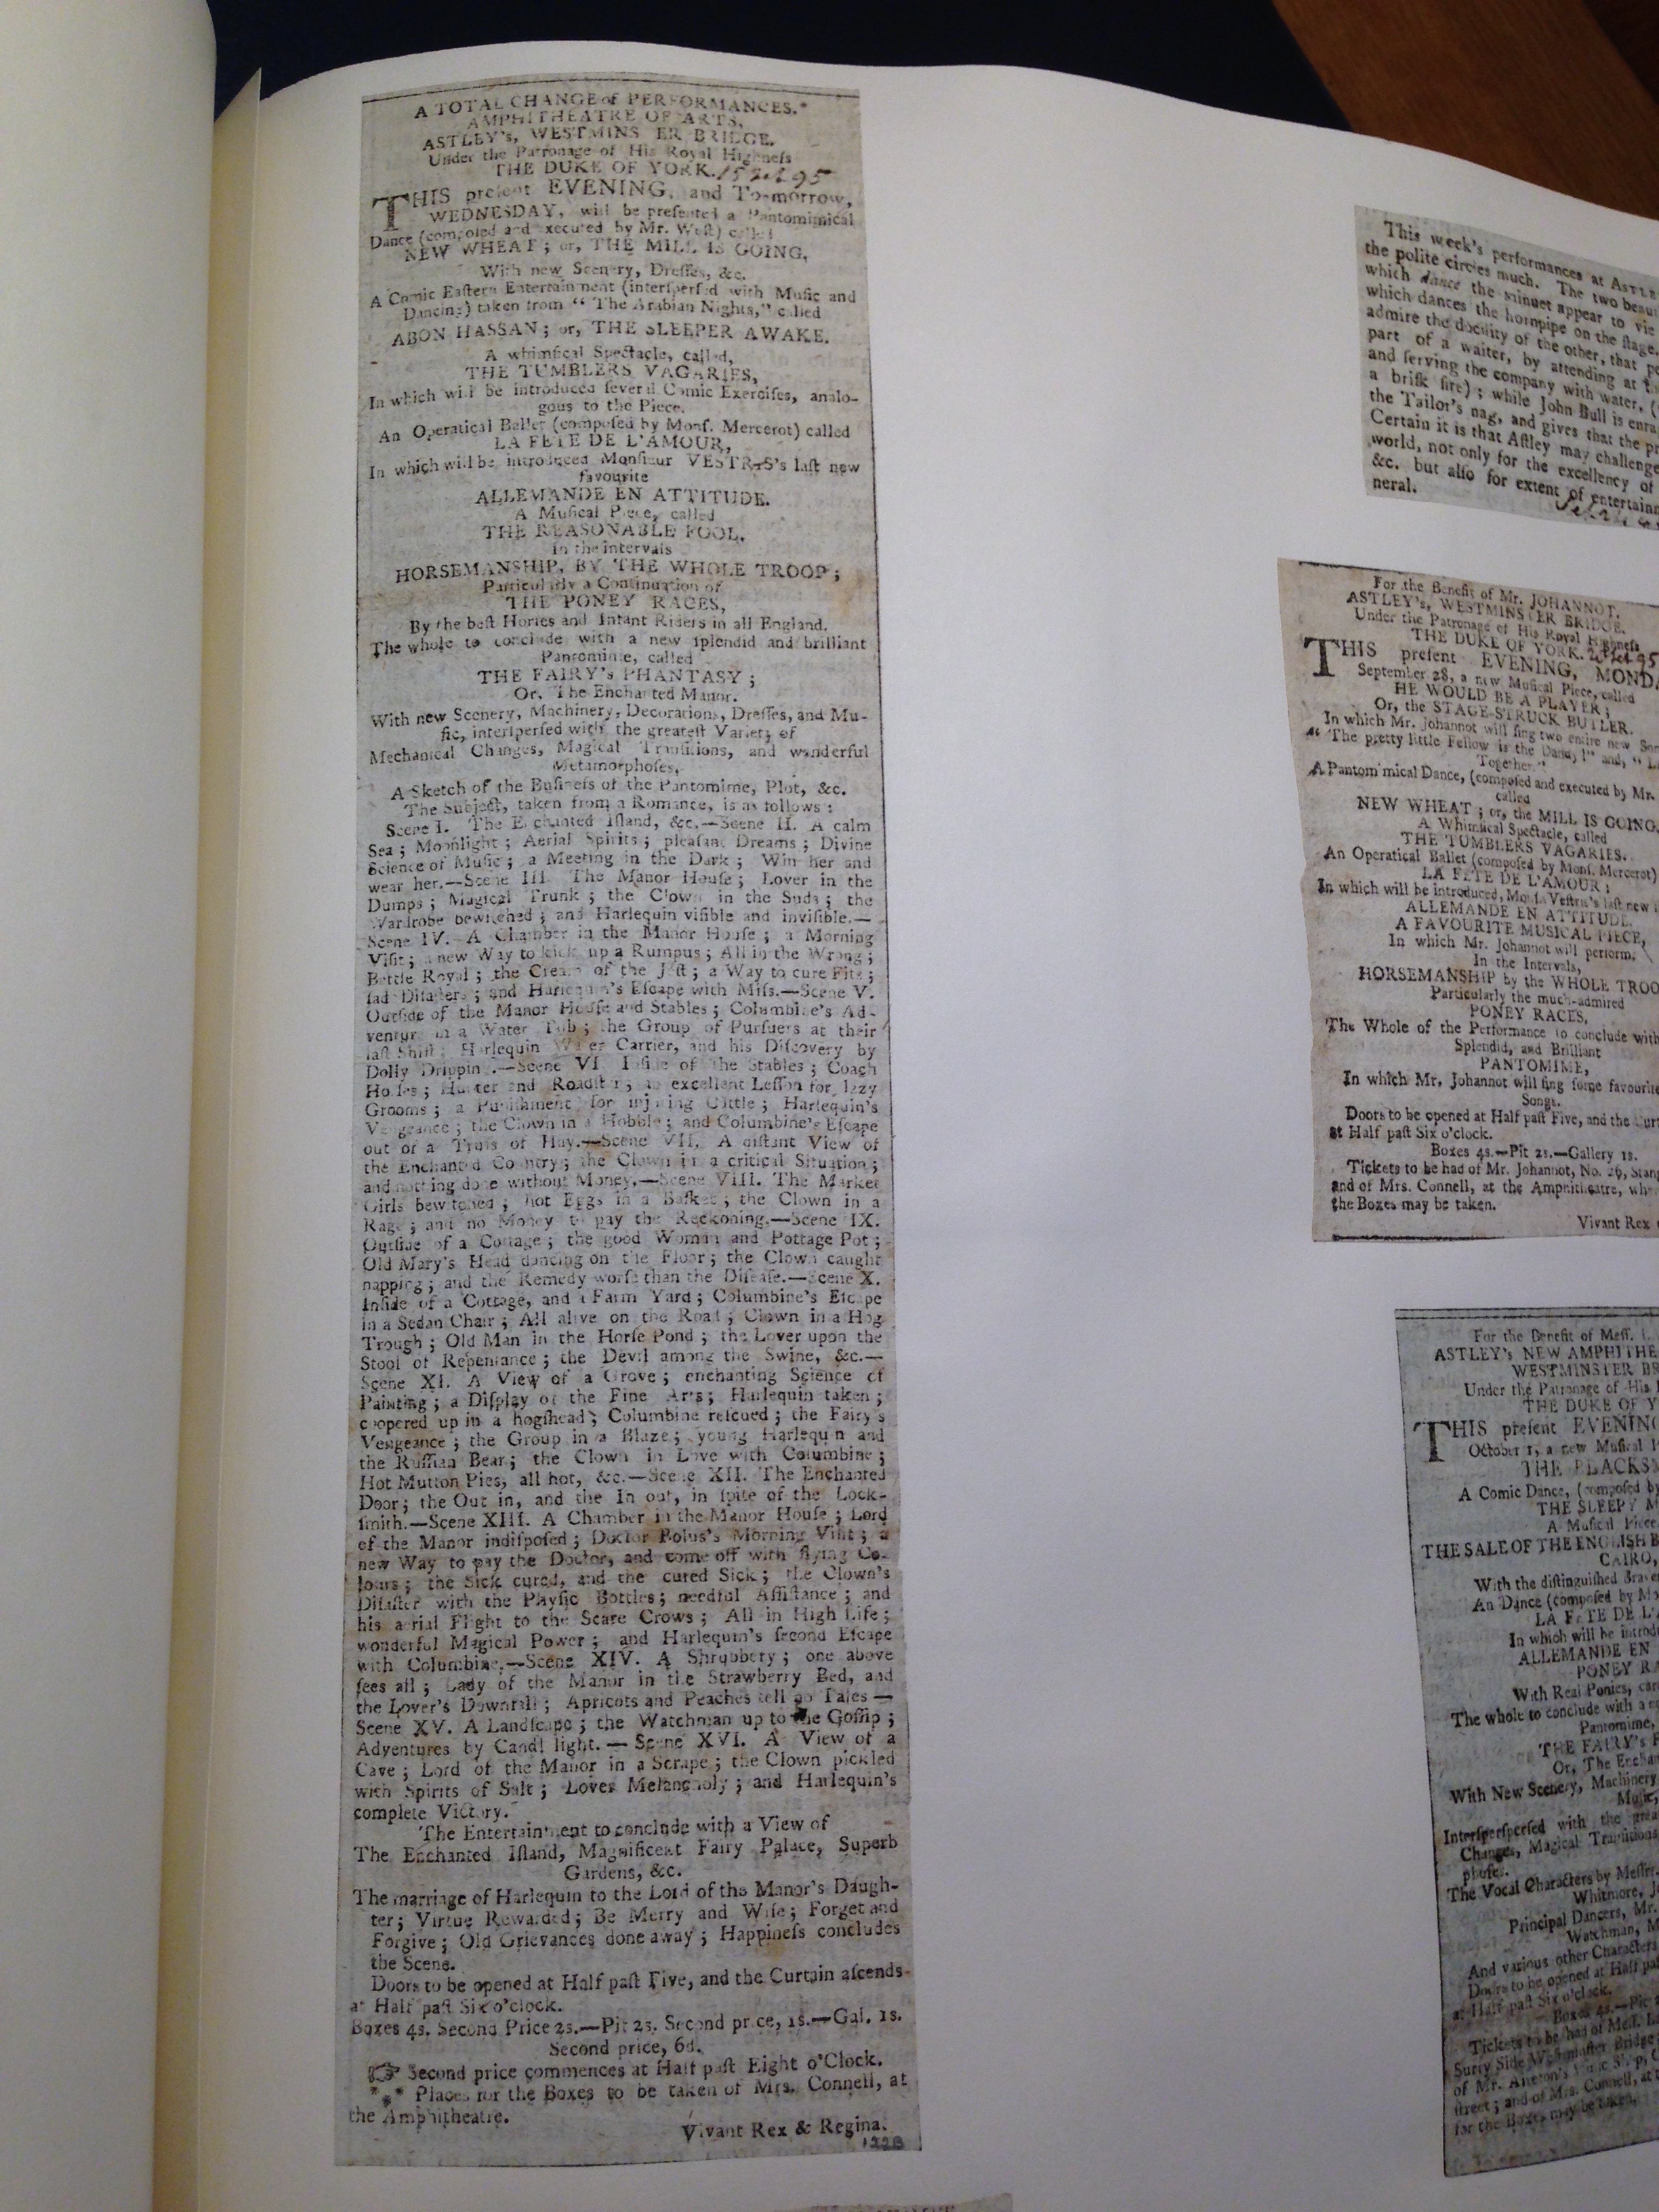 A TOTAL CHANGE of PERFORMANCES.
AMPHITHEATRE OF ARTS,
ASTLEY's, WESTMINS ER BRIDGE.
Under the Patronage of His Royal Highneſs
THE DUKE OF YORK. 95
THIS preſent EVENING, and To-morrow,
WEDNESDAY, will be preſented a Pantomimical
Dance (compoſed and executed by Mr. Weſt) called
NEW WHEAT; or, THE MILL IS GOING,
With new Scenery, Dreſſes, &c.
A Comic Eaſtern Entertainment (interſperſed with Muſic and
Dancing) taken from "The Arabian Nights," called
ABON HASSAN; or, THE SLEEPER AWAKE.
A whimſical Spectacle, called,
THE TUMBLERS VAGARIES,
In which will be introduced ſeveral Comic Exerciſes, analo-
gous to the Piece.
An Operatical Ballet (compoſed by Monſ. Mercerot) called
LA FETE DE L'AMOUR,
In which will be introduced Monſieur VESTRIS's laſt new
favourite
ALLEMANDE EN ATTITUDE.
A Muſical Piece, called
THE REASONABLE FOOL.
In the intervals
HORSEMANSHIP, BY THE WHOLE TROOP;
Particularly a Continuation of
THE PONEY RACES,
By the beſt Horſes and Infant Riders in all England.
The whole to conclude with a new ſplendid and brilliant
Pantomime, called
THE FAIRY's PHANTASY;
Or, The Enchanted Manor.
With new Scenery, Machinery, Decorations, Dreſſes, and Mu-
ſic, interſperſed with the greateſt Variety of
Mechanical Changes, Magical Tranſitions, and wonderful
Metamorphoſes,
A Sketch of the Buſineſs of the Pantomime, Plot, &c.
The Subject, taken from a Romance, is as follows:
Scene I. The Enchanted Iſland, &c.—Scene II. A calm
Sea; Moonlight; Aerial Spirits; pleaſant Dreams; Divine
Science of Muſic; a Meeting in the Dark; Win her and
wear her.—Scene III. The Manor Houſe; Lover in the
Dumps; Magical Trunk; the Clown in the Suds; the
Wardrobe bewitched; and Harlequin viſible and inviſible.—
Scene IV. A Chamber in the Manor Houſe; a Morning
Viſit; a new Way to kick up a Rumpus; All in the Wrong;
Battle Royal; the Cream of the Jeſt; a Way to cure Fits;
ſad Diſaſters; and Harlequin's Eſcape with Miſs.—Scene V.
Outſide of the Manor Houſe and Stables; Columbine's Ad-
venture in a Water Tub; the Group of Purſuers at their
laſt Shift; Harlequin Water Carrier, and his Diſcovery by
Dolly Drippin .—Scene VI. Inſide of the Stables; Coach
Horſes; Hunter and Roadſter; an excellent Leſſon for lazy
Grooms; a Puniſhment for injuring Cattle; Harlequin's
Vengeance; the Clown in a Hobble; and Columbine's Eſcape
out of a Truſs of Hay.—Scene VII. A diſtant View of
the Enchanted Country; the Clown in a critical Situation;
and nothing done without Money.—Scene VIII. The Market
Girls bewitched; hot Eggs in a Baſket; the Clown in a
Rage; and no Money to pay the Reckoning.—Scene IX.
Outſide of a Cottage; the good Woman and Pottage Pot;
Old Mary's Head dancing on the Floor; the Clown caught
napping; and the Remedy worſe than the Diſeaſe.—Scene X.
Inſide of a Cottage, and a Farm Yard; Columbine's Eſcape
in a Sedan Chair; All alive on the Road; Clown in a Hog
Trough; Old Man in the Horſe Pond; the Lover upon the
Stool of Repentance; the Devil among the Swine, &c.—
Scene XI. A View of a Grove; enchanting Science of
Painting; a Diſplay of the Fine Arts; Harlequin taken;
coopered up in a hogſhead; Columbine reſcued; the Fairy's
Vengeance; the Group in a Blaze; young Harlequin and
the Ruſſian Bear; the Clown in Love with Columbine;
Hot Mutton Pies, all hot, &c.—Scene XII. The Enchanted
Door; the Out in, and the In out, in ſpite of the Lock-
ſmith.—Scene XIII. A Chamber in the Manor Houſe; Lord
of the Manor indiſpoſed; Doctor Bolus's Morning Viſit; a
new Way to pay the Doctor, and come off with flying Co-
lours; the Sick cured, and the cured Sick; the Clown's
Diſaſter with the Phyſic Bottles; needful Aſſiſtance; and
his aerial Flight to the Scare Crows; All in High Life;
wonderful Magical Power; and Harlequin's ſecond Eſcape
with Columbine.—Scene XIV. A Shrubbery; one above
ſees all; Lady of the Manor in the Strawberry Bed, and
the Lover's Downfall; Apricots and Peaches tell no Tales—
Scene XV. A Landſcape; the Watchman up to the Goſſip;
Adventures by Candl light.—Scene XVI. A View of a
Cave; Lord of the Manor in a Scrape; the Clown pickled
with Spirits of Salt; Loves Melancholy; and Harlequin's
complete Victory.
The Entertainment to conclude with a View of
The Enchanted Iſland, Magnificent Fairy Palace, Superb
Gardens, &c.
The marriage of Harlequin to the Lord of the Manor's Daugh-
ter; Virtue Rewarded; Be Merry and Wiſe; Forget and
Forgive; Old Grievances done away; Happineſs concludes
the Scene.
Doors to be opened at Half paſt Five, and the Curtain aſcends
at Half paſt Six o'clock.
Boxes 4s. Second Price 2s.—Pit 2s. Second price, 1s.—Gal. 1s.
Second price, 6d.
☞ Second price commences at Half paſt Eight o'Clock.
*⁎* Places for the Boxes to be taken of Mrs. Connell, at
the Amphitheatre.
Vivant Rex & Regina.
This week's performances at ASTLE
the polite circles much. The two beau
which dance the minuet appear to vie
which dances the hornpipe on the ſtage.
admire the docility of the other, that pe
part of a waiter, by attending at
and ſerving the company with water, (
a briſk fire); while John Bull is enra
the Tailor's nag, and gives that the pr
Certain it is that Aſtley may challenge
world, not only for the excellency of
&c. but alſo for extent of entertainm
neral.
For the Benefit of Mr. JOHANNOT.
ASTLEY's, WESTMINSTER BRIDGE.
Under the Patronage of His Royal Highneſs
THE DUKE OF YORK. 95
THIS preſent EVENING, MONDA
September 28, a new Muſical Piece, called
HE WOULD BE A PLAYER;
Or, the STAGE-STRUCK BUTLER.
In which Mr. Johannot will ſing two entire new Son
"The pretty little Fellow is the Dandy!" and, "L
Together."
A Pantomimical Dance, (compoſed and executed by Mr.
called
NEW WHEAT; or, the MILL IS GOING.
A Whimſical Spectacle, called
THE TUMBLERS VAGARIES.
An Operatical Ballet (compoſed by Monſ. Mercerot)
LA FETE DE L'AMOUR;
In which will be introduced, Monſ. Veſtris's laſt new
ALLEMANDE EN ATTITUDE.
A FAVOURITE MUSICAL PIECE,
In which Mr. Johannot will perform.
In the Intervals,
HORSEMANSHIP by the WHOLE TROO
Particularly the much-admired
PONEY RACES,
The Whole of the Performance to conclude with
Splendid, and Brilliant
PANTOMIME,
In which Mr. Johannot will ſing ſome favourite
Songs.
Doors to be opened at Half paſt Five, and the Curt
at Half paſt Six o'clock.
Boxes 4s.—Pit 2s.—Gallery 1s.
Tickets to be had of Mr. Johannot, No. 26, Stang
and of Mrs. Connell, at the Amphitheatre, whe
the Boxes may be taken.
Vivant Rex
For the Benefit of Meſſ.
ASTLEY's NEW AMPHITHE
WESTMINSTER BR
Under the Patronage of His
THE DUKE OF Y
THIS preſent EVENING
October 1, a new Muſical
THE BLACKSM
A Comic Dance, (compoſed by
THE SLEEPY M
A Muſical Piece
THE SALE OF THE ENGLISH B
CAIRO,
With the diſtinguiſhed Brave
An Dance (compoſed by Mo
LA FETE DE L'A
In which will be introd
ALLEMANDE EN
PONEY RA
With Real Ponies, car
The whole to conclude with a n
Pantomime,
THE FAIRY's P
Or, The Enchan
With New Scenery, Machinery
Muſic,
Interſperſperſed with the grea
Changes, Magical Tranſitions
phoſes.
The Vocal Characters by Meſſrs.
Whitmore, J
Principal Dancers, Mr.
Watchman, M
And various other Characters
Doors to be opened at Half paſ
at Half paſt Six o'clock.
Boxes 4s.—Pit
Tickets to be had of Meſſ.
Surry Side Weſtminſter Bridge
of Mr.
ſtreet; and of Mrs. Connell, at
for the Boxes may be taken.